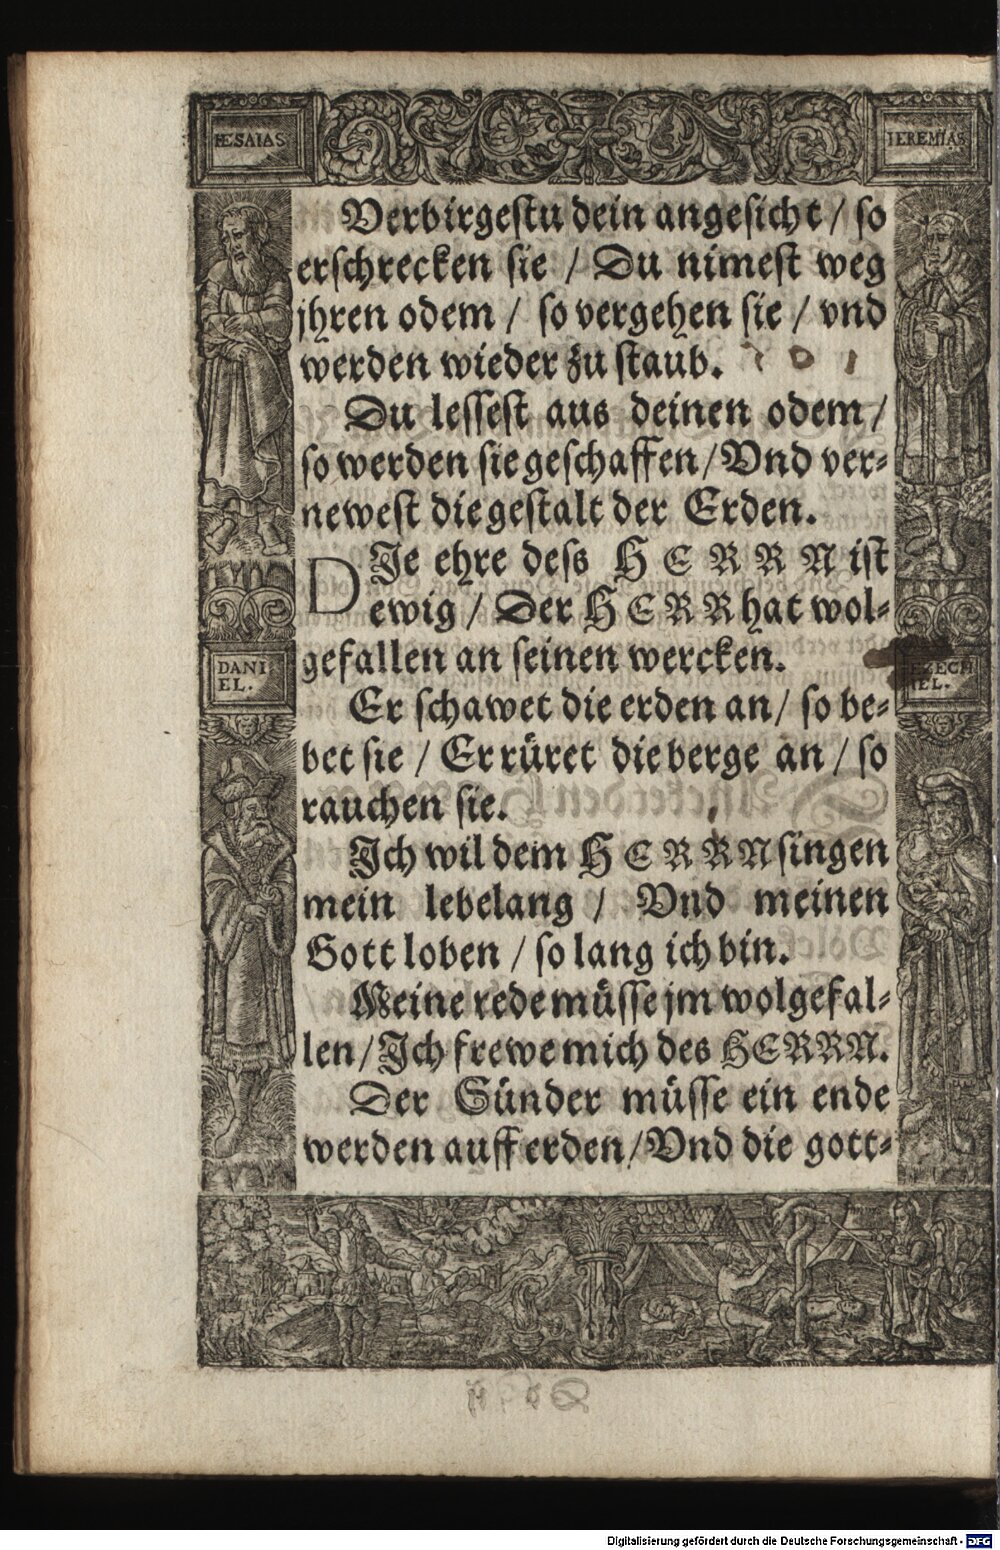 IESAIAS
IEREMIAS
Verbirgestu dein angesicht / so
erschrecken sie / Du nimest weg
jhren odem / so vergehen sie / vnd
werden wieder zu staub.
Du lessest aus deinen odem /
so werden sie geschaffen / Vnd ver-
newest die gestalt der Erden.
DJe ehre dess HERRN ist
ewig / Der HERR hat wol-
gefallen an seinen wercken.
DANI
EL.
EZECH
IEL.
Er schawet die erden an / so be-
bet sie / Er rüret die berge an / so
rauchen sie.
Jch wil dem HERRN singen
mein lebelang / Vnd meinen
Gott loben / so lang ich bin.
Meine rede müsse jm wolgefal-
len / Jch frewe mich des HERRN.
Der Sünder müsse ein ende
werden auff erden / Vnd die gott-
Digitalisierung gefördert durch die Deutsche Forschungsgemeinschaft - DFG